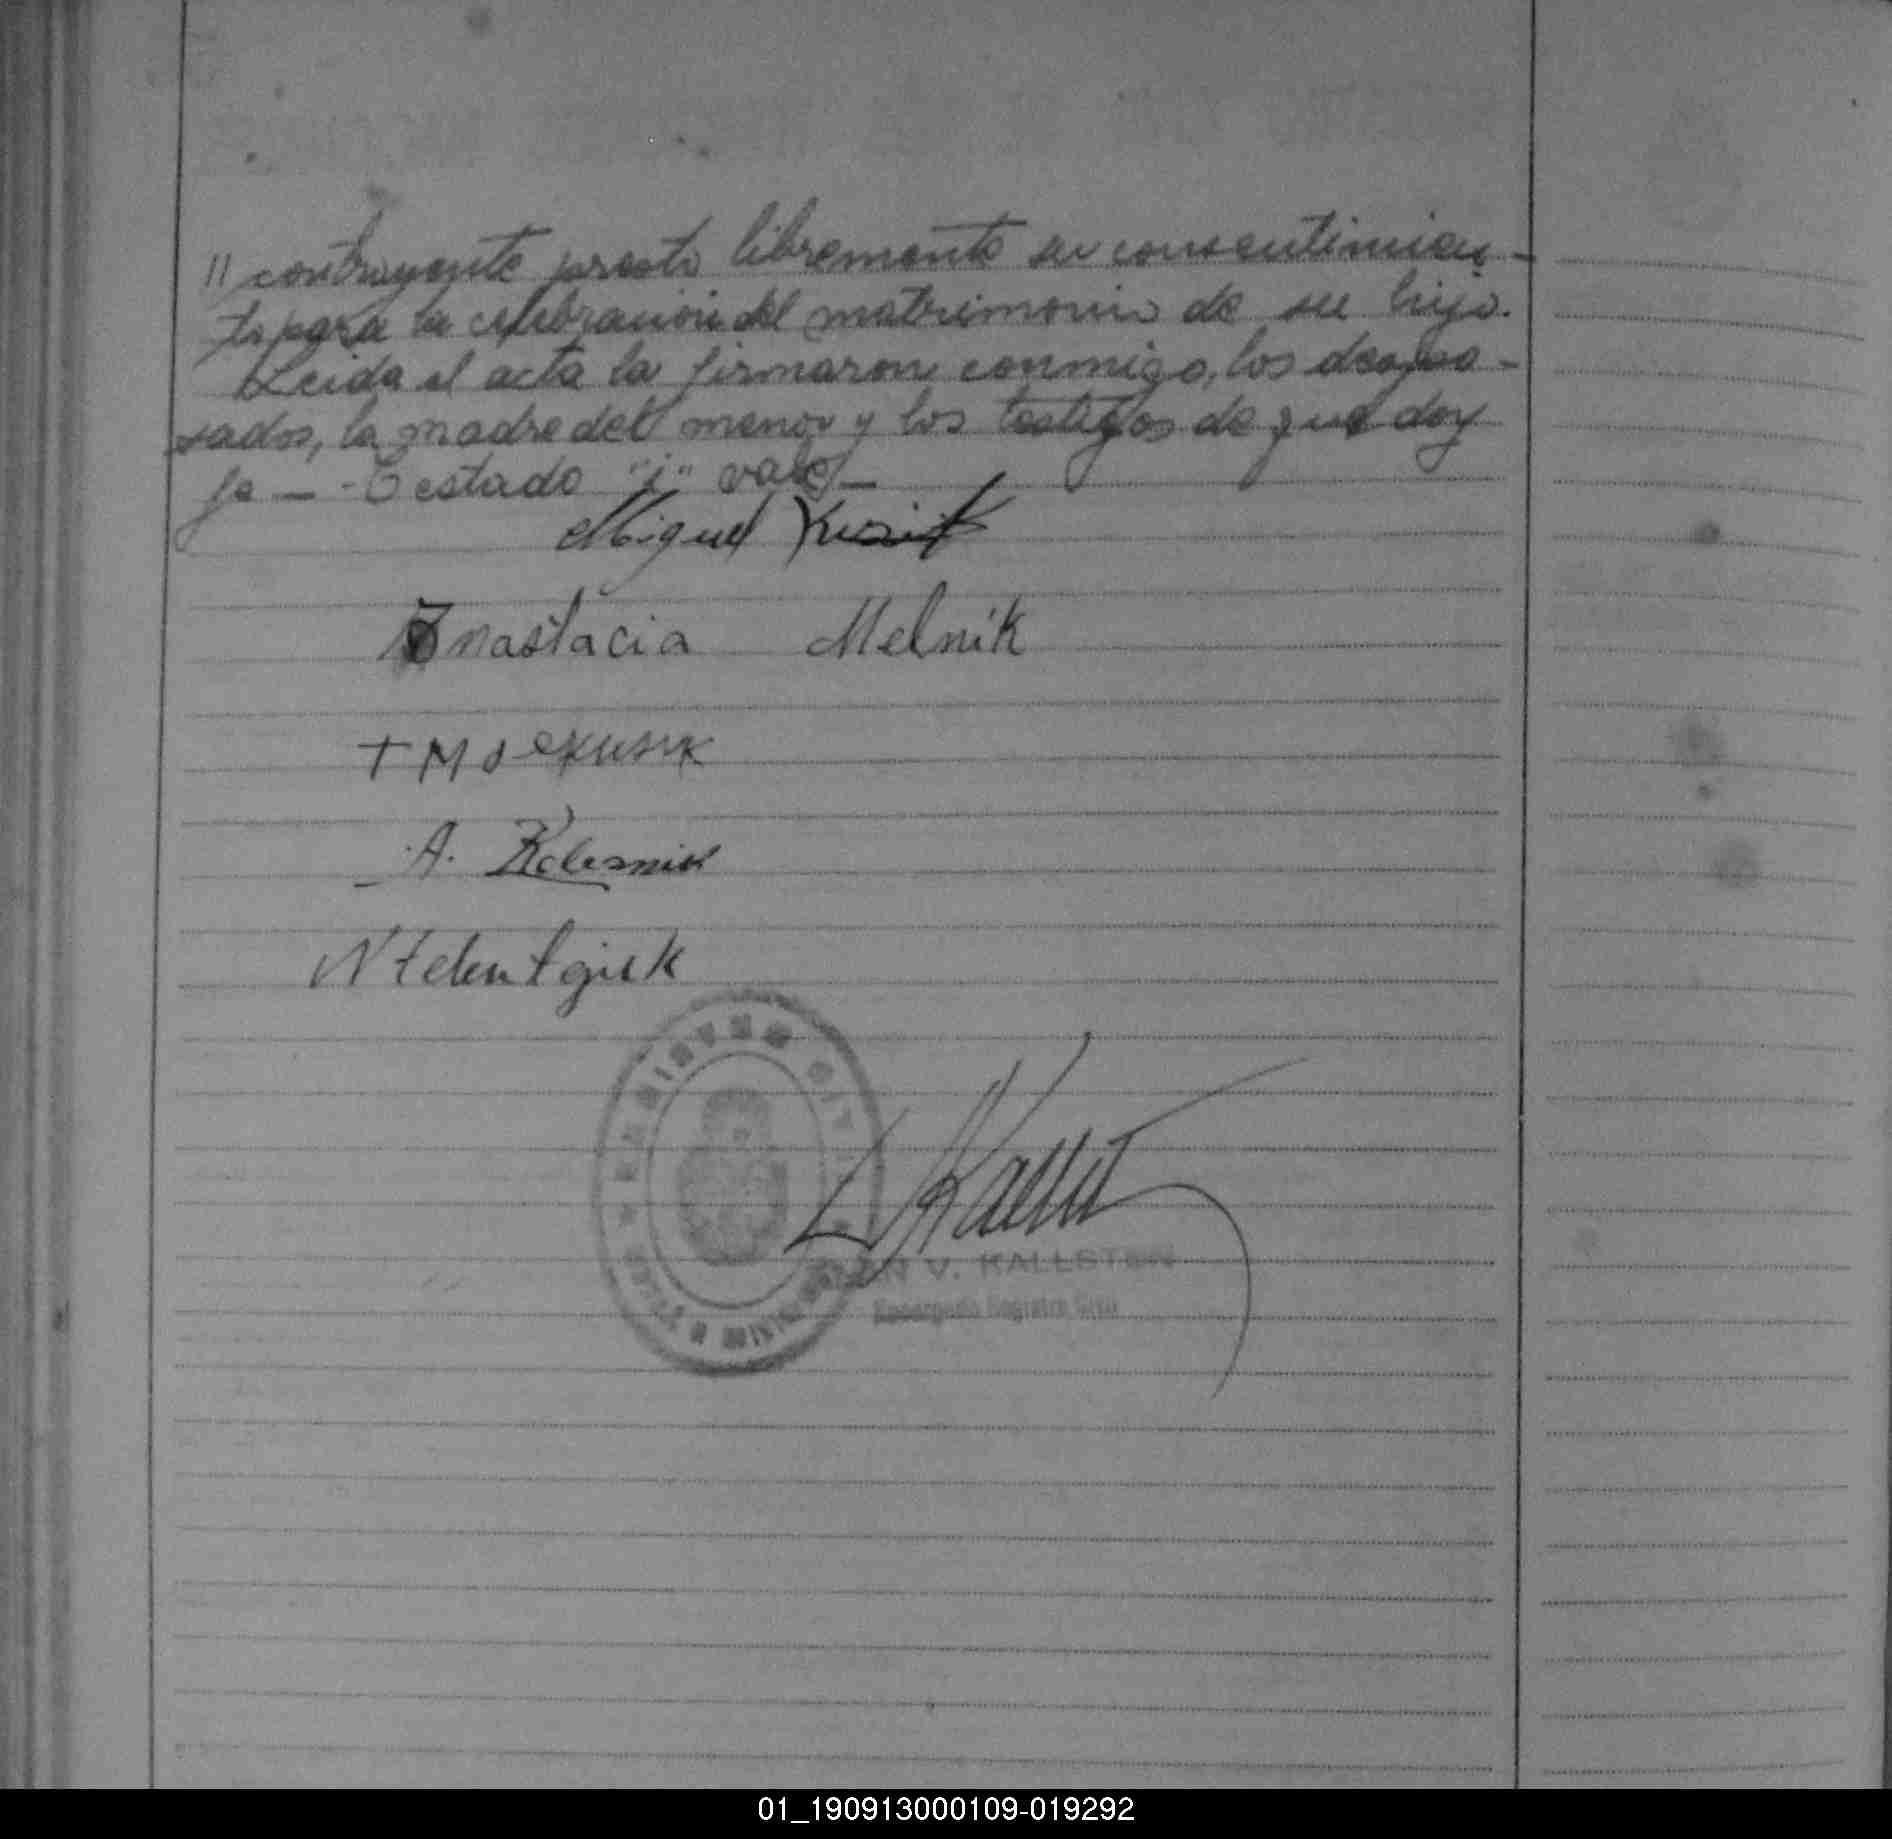 // contrayente presta libremente su consentimien-
to para la celebracion del matrimonio de su hijo.
Leida el acta la firmaron conmigo, los despo-
sados, la madre del menor y los testigos de que doy
fe — Testado "i" vale —
Miguel Kusik
Anastacia Melnik
A. Kolesnik
L Kallst
V. KALLSTEN
Encargado Registro Civil
01_190913000109-019292